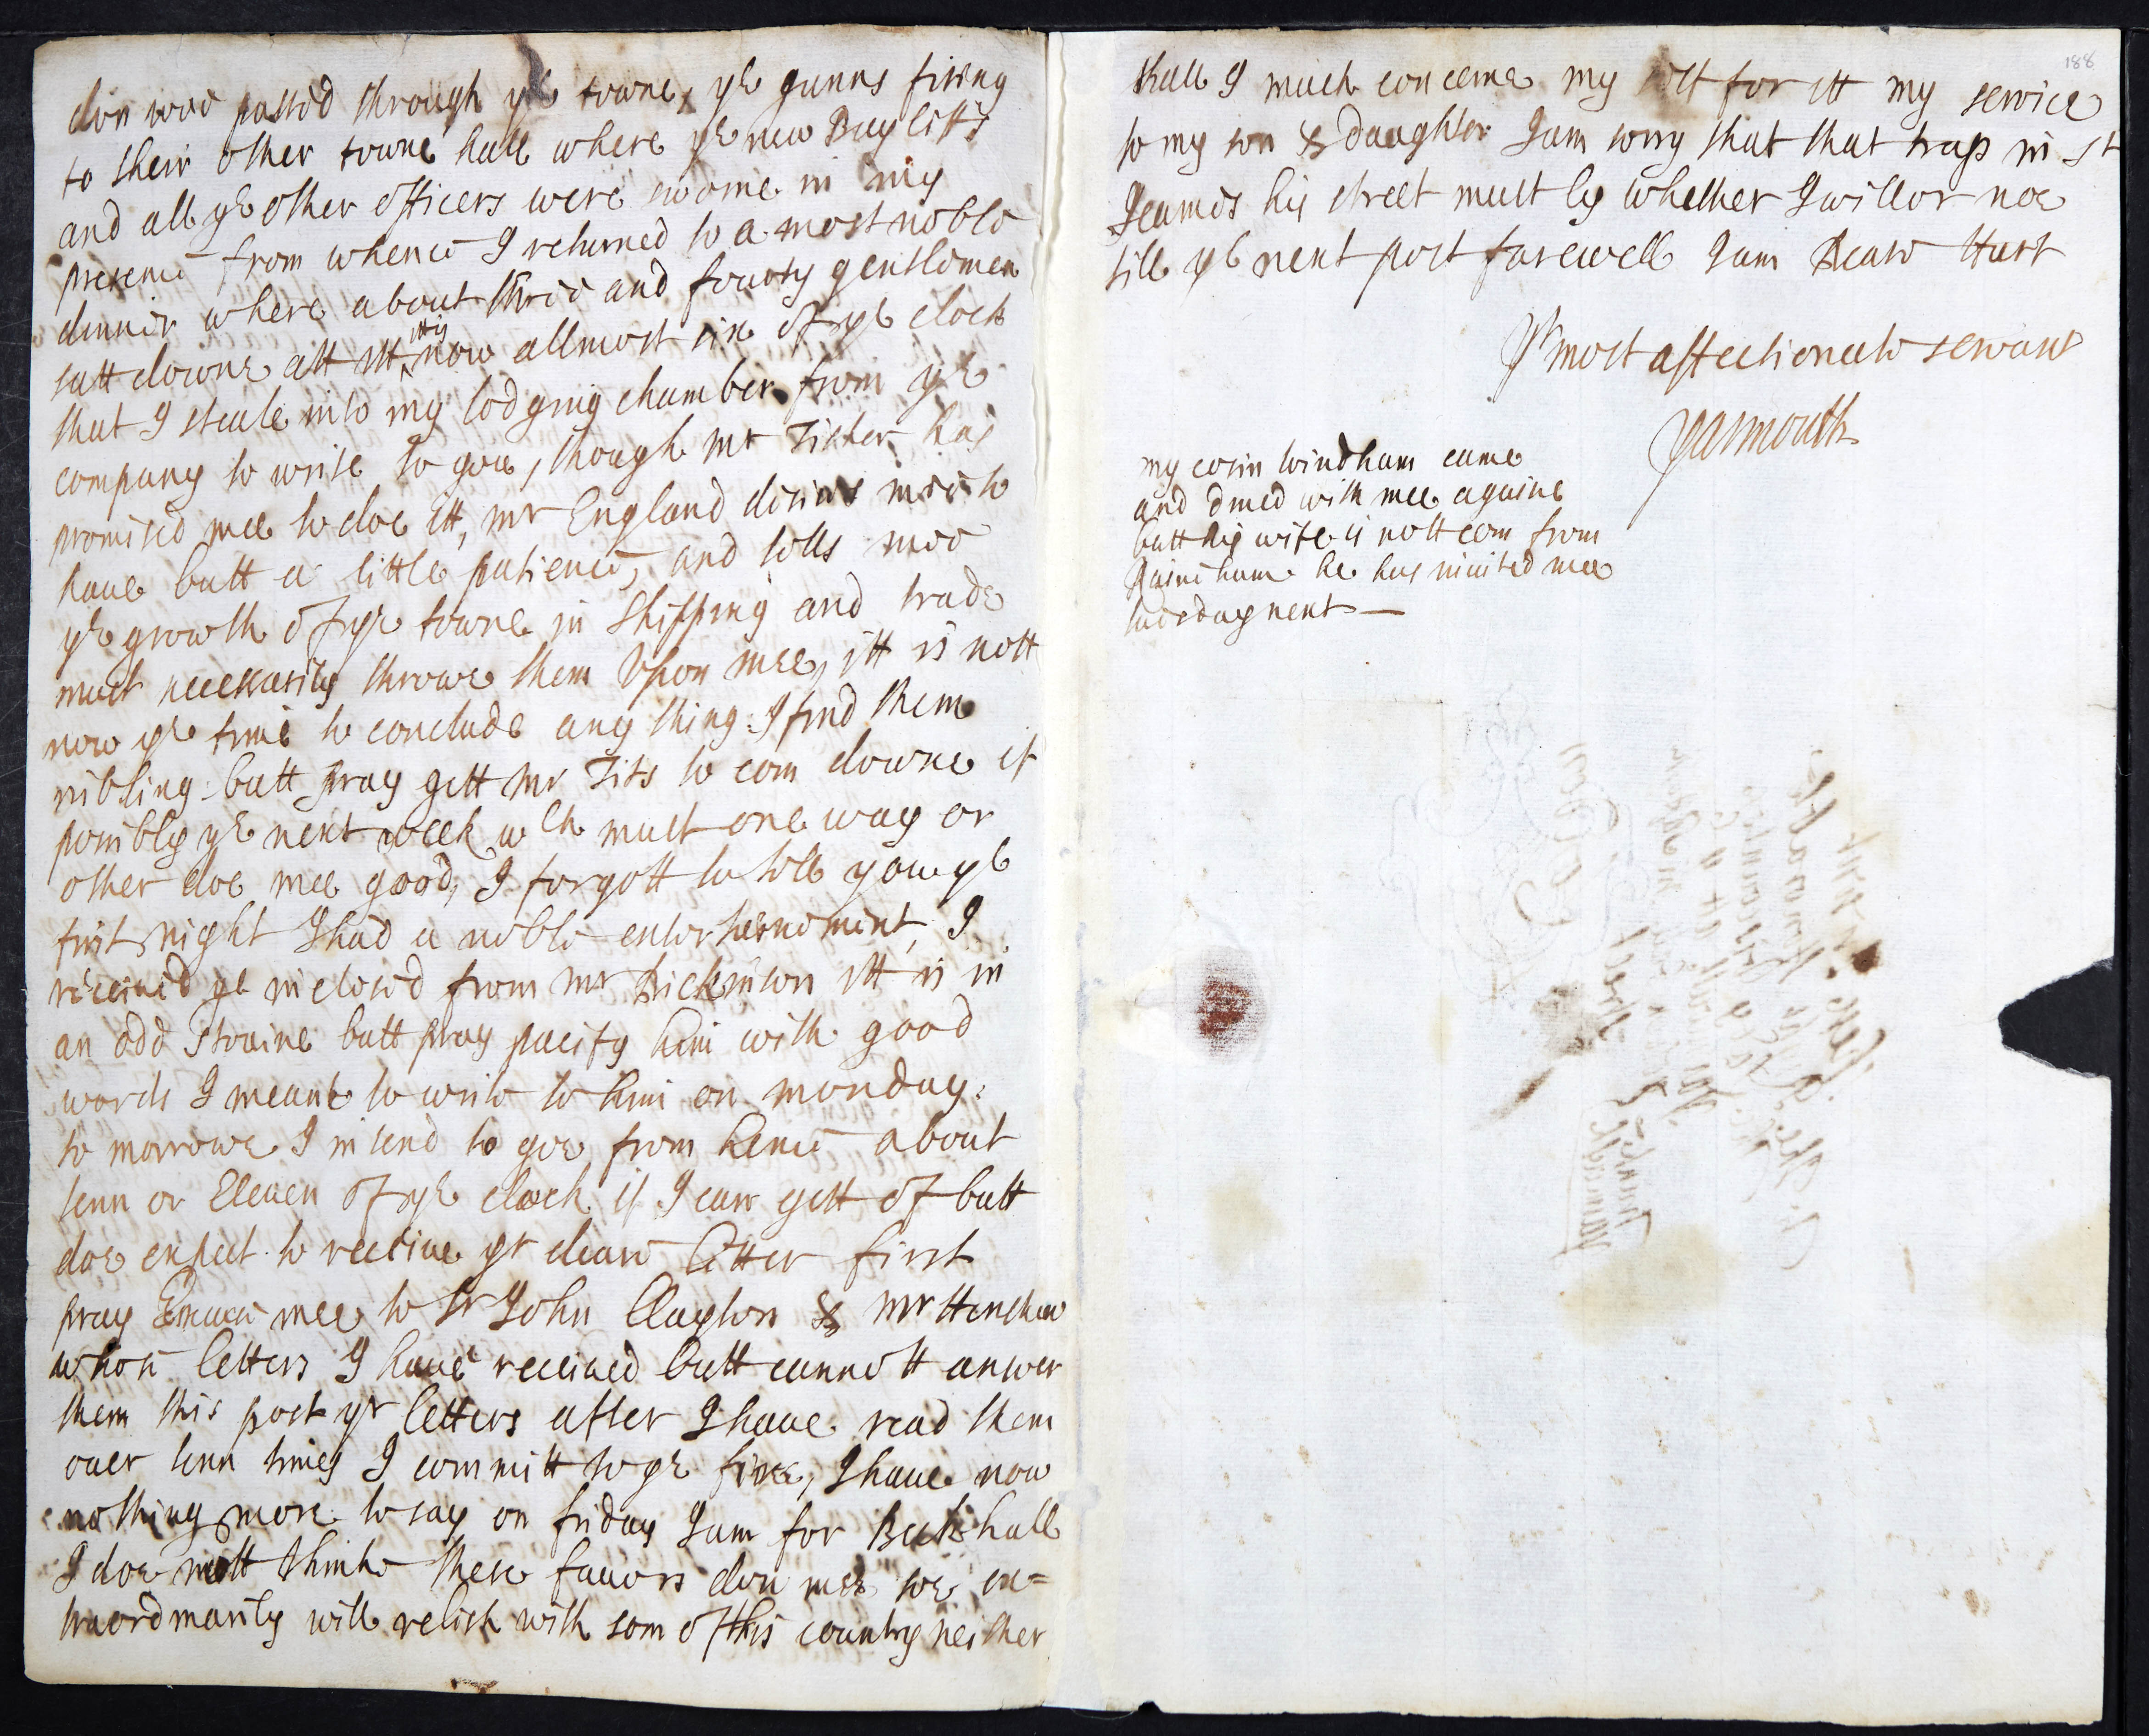 don wee passed through ye towne, ye gunns firing
to their other towne hall where ye new Bayliffs
and all ye other officers were sworne in my
presence from whence I returned to a most noble
dinner where about three and fourty gentlemen
satt downe att itt
itt is
now allmost six of ye clock
that I steale into my lodging chamber from ye
company to write to you, though mr Fisher has
promised mee to doe itt, mr England desires mee to
haue butt a little patience, and tells mee
ye growth of ye towne in Shipping and trade
must necessarily throwe them Vpon mee, itt is nott
now ye time to conclude any thing: I find them
nibling: butt pray gett mr Fits to com downe if
possibly ye next week wch must one way or
other doe mee good, I forgott to tell you ye
first night I had a noble entertainement, I
receiued ye inclosed from mr Dickinson itt is in
an odd straine butt pray pacify him with good
words I meane to write to him on monday:
to morrowe I intend to goe from hence about
tenn or Eleuen of ye clock if I can gett of butt
doe expect to receiue yr deare letter first
pray Excuse mee to Sr John Clayton & Mr Henshaw
whose letters I haue receiued butt cannott answer
them this post yr letters after I haue read them
ouer tenn times I committ to ye fire, I haue now
nothing more to say on friday I am for Beckhall
I doe nott thinke these fauors don mee soe ex=
traordinarily will relish with som of this country neither
188
shall I much concerne my self for itt my seruice
to my son & daughter I am sorry that that trap in St
Jeameses his street must ly whether I will or noe
till ye next post farewell I am Deare Hart
Yr most affectionate seruant
Yarmouth
my cosin Windham came
and dined with mee againe
butt his wife is nott com from
Rainham he has inuited mee
tuesday next —